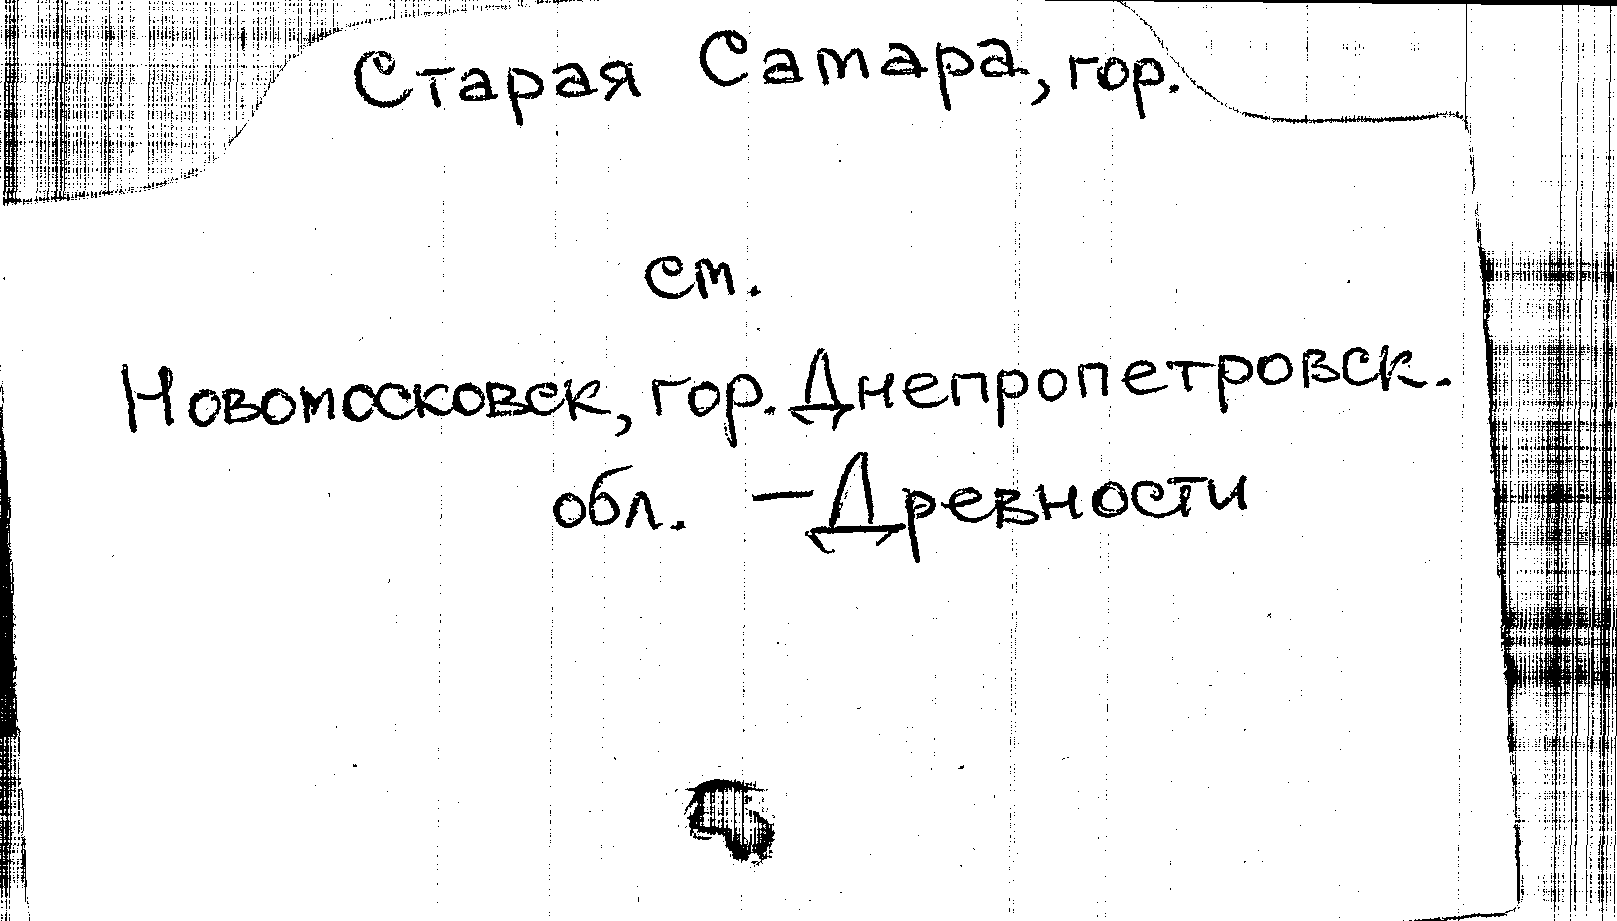 Старая Самара, гор.
см.
Новомосковск, гор. Днепропетровск.
обл. — Древности